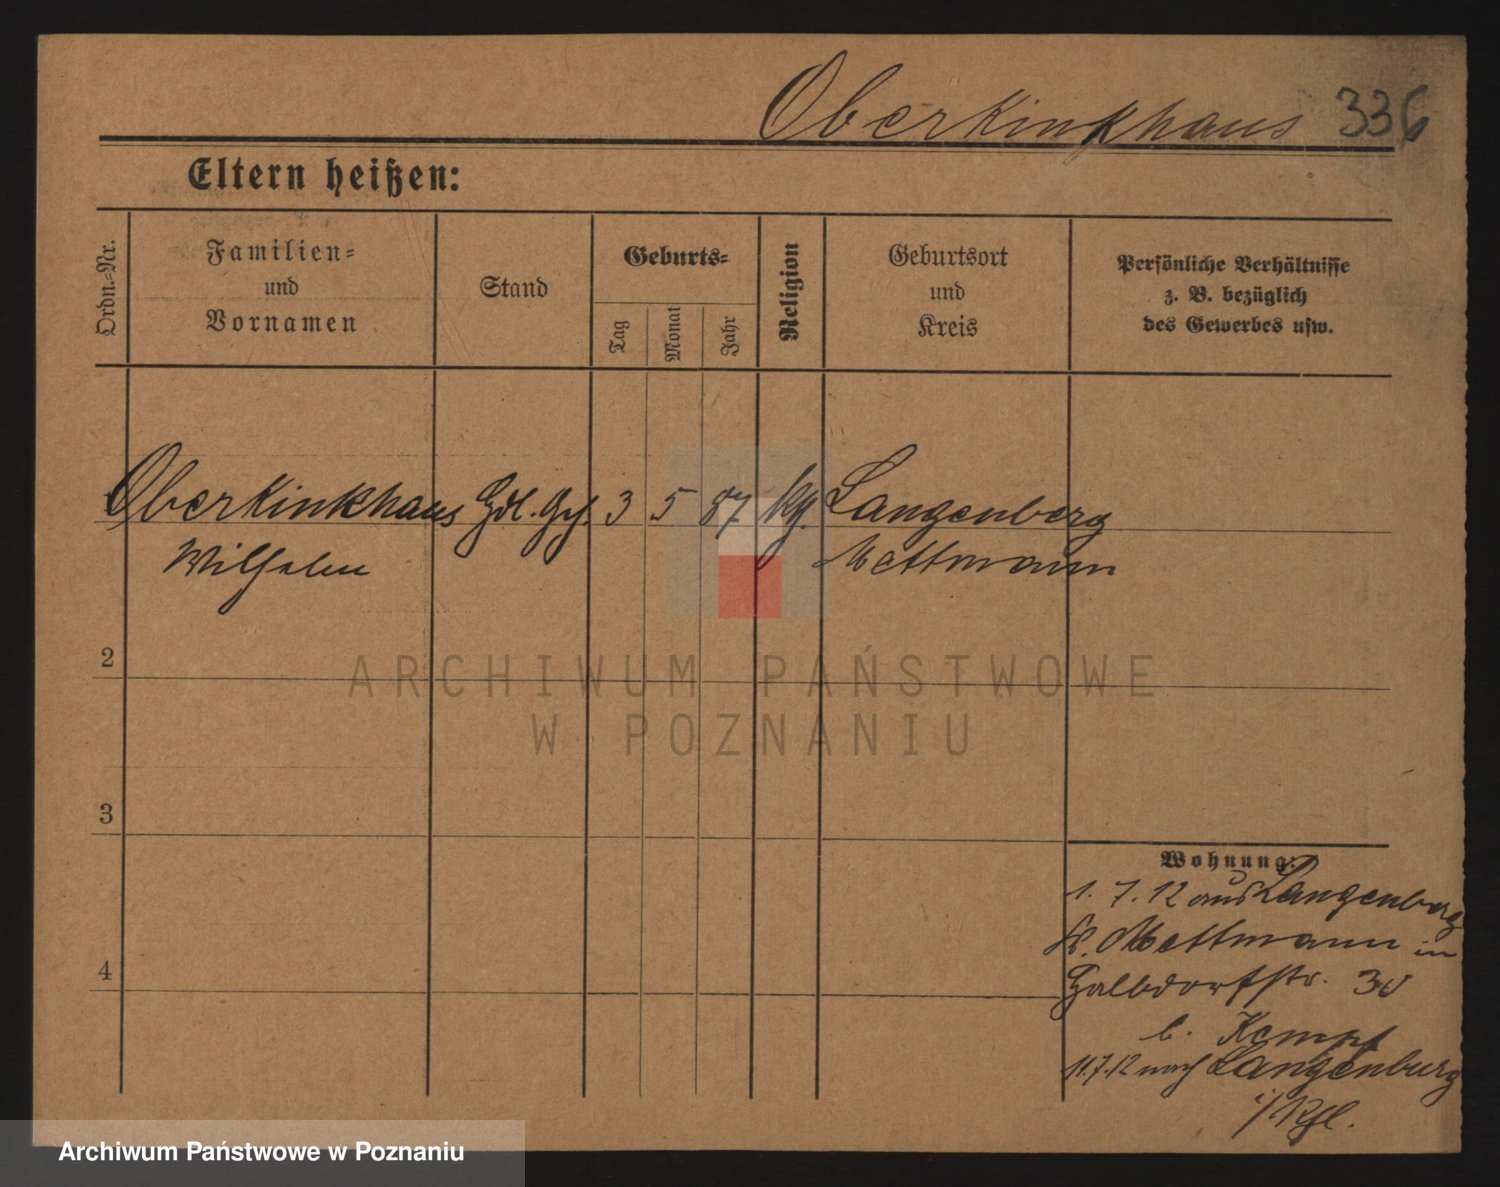 Oberkinkhaus 336
Eltern heißen:
Ordn.-Nr.
Familien-
und
Vornamen
Stand
Geburts-
Tag
Monat
Jahr
Religion
Geburtsort
und
Kreis
Persönliche Verhältnisse
z. B. bezüglich
des Gewerbes usw.
Oberkinkhaus Hdl. Gh. 3 5 87 kg. Langenberg
Wilhelm Mettmann
2
3
4
Wohnung:
1. 7. 12 aus Langenberg
Kr. Mettmann in
Halbdorfstr. 30
b. Kempf
11.7.12 nach Langenburg
i/Rhl.
ARCHIWUM PAŃSTWOWE
W POZNANIU
Archiwum Państwowe w Poznaniu